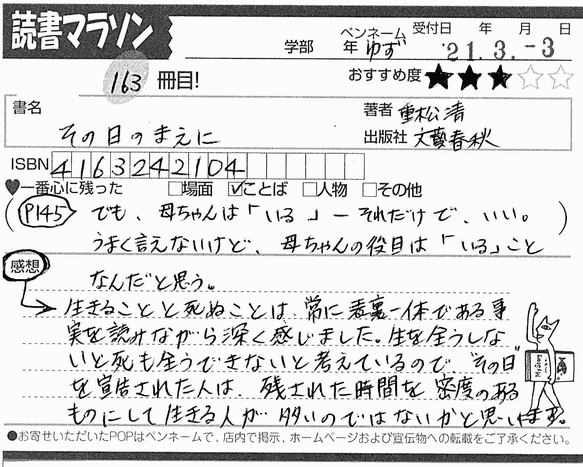 読書マラソン
学部 年 ペンネーム ゆず 受付日 年 月 日 '21.3.-3
163 冊目!
おすすめ度 ★★★☆☆
書名 その日のまえに
著者 重松清
出版社 文藝春秋
ISBN 4163242104
♥一番心に残った □場面 ☑ことば □人物 □その他
(P145 でも、母ちゃんは「いる」―それだけで、いい。
うまく言えないけど、母ちゃんの役目は「いる」こと)
なんだと思う。
感想
→生きることと死ぬことは、常に表裏一体である事
実を読みながら深く感じました。生を全うしな
いと死も全うできないと考えているので、"その日"
を宣告された人は、残された時間を密度のある
ものにして生きる人が多いのではないかと思います。
●お寄せいただいたPOPはペンネームで、店内で掲示、ホームページおよび宣伝物への転載をご了承ください。